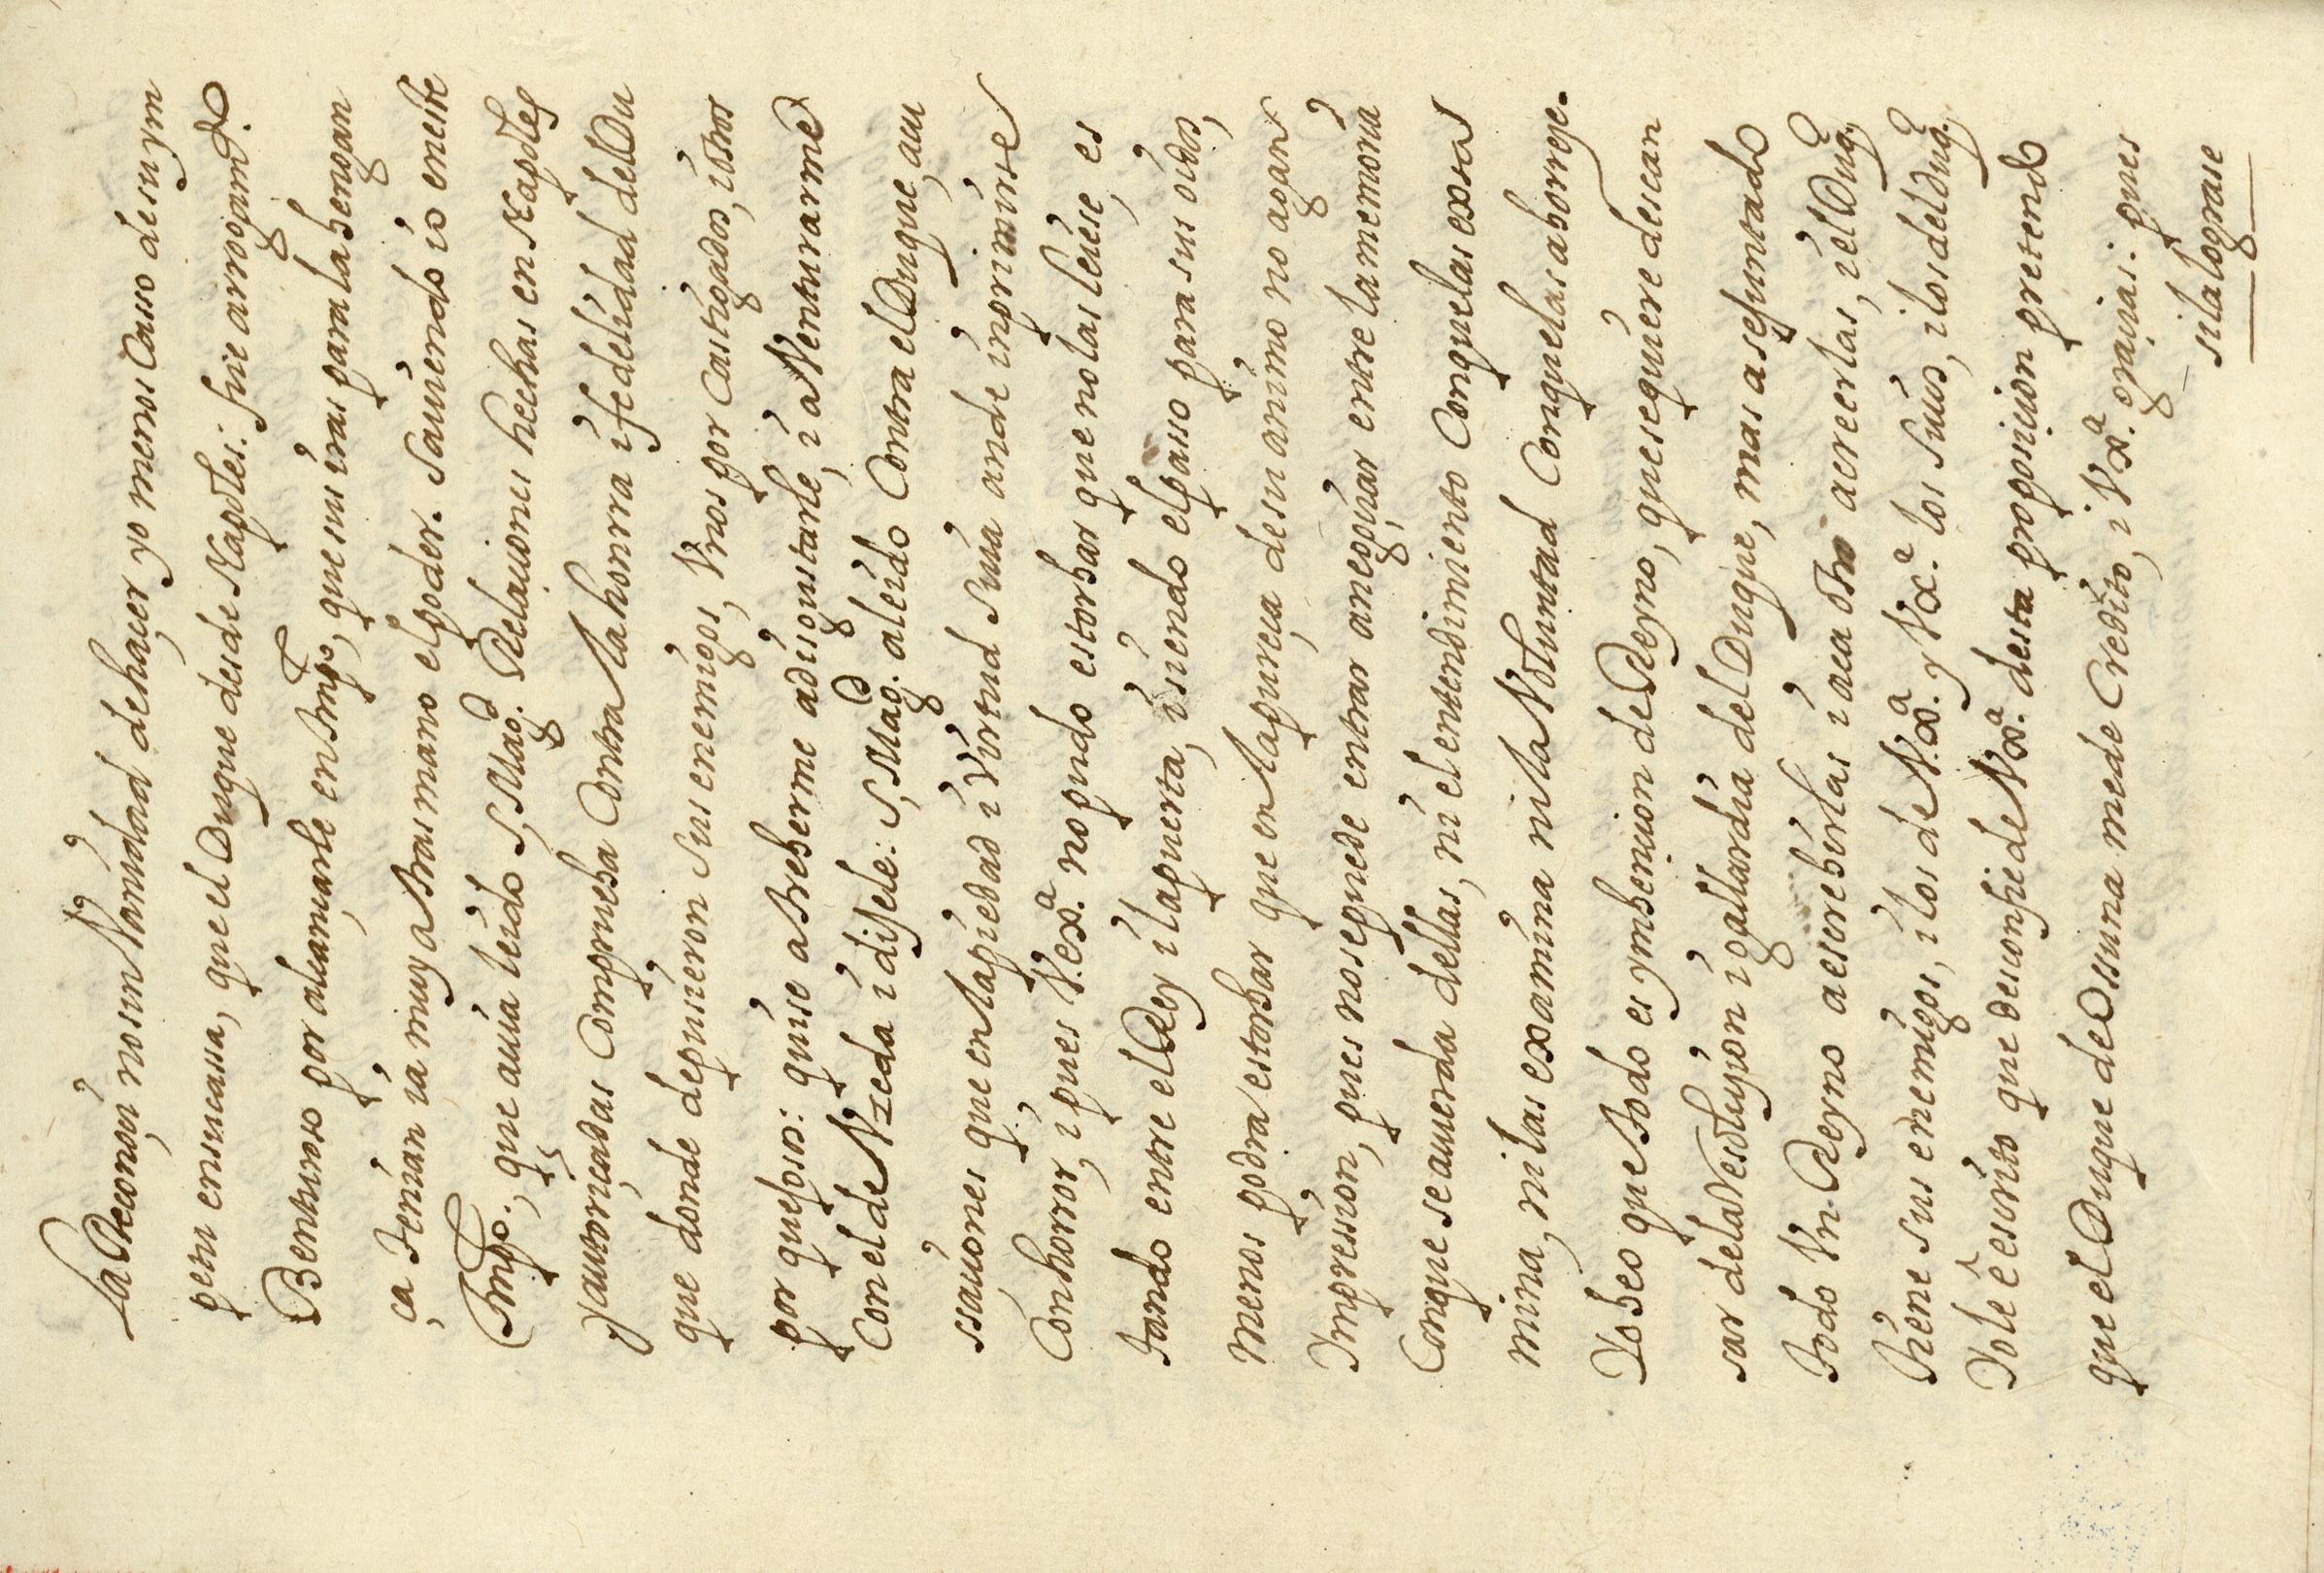 la Reconoçi no sin Vanidad de haçer yo menos Casso de su ym
petu en su cassa, que el Duque desde Napoles: fui e arrogamte
Benturoso por alcançarle en tmpo, que sus iras para la bengan
ça tenian ia muy a tras mano el poder. Sauiendo io en este
tmpo, que auia leido S, Magd Relaçiones hechas en Napoles
yautoriçadas Comprueba Contra la honrra i fedelidad del Du
que donde depusieron sus enemigos, Vnos por Castigados, i otros
por quesosos: quise atreberme adisgustarle, i aVenturarme
Con el de Vzeda i dijele: S, Magd. aleido Contra el Duque, acu
ssaçiones que en la piedad i Virtud Suia an de inprimirse
Con horror, i pues V. exa. no pudo estorbar que no las leiese, es
tando entre el Rey i la puerta, i siendo el passo para sus oidos,
menos podra estorbar que en la pureça de su animo no agan
Impression, pues no se puede entrar a negoçiar entre la memoria
Con que se acuerda dellas, ni el entendimiento Con que las exsa
mina, ni las examina ni la Voluntad Con que las aborreçe.
Yo beo que todo es ymbençion de Reyno, que se quiere descan
sar de la Resoluçion i gallardia del Duque, mas a se juntado
todo Vn Reyno a escrebirlas i aca otro acreerlas, i el Duqe
tiene sus enemigos, i los de V. xa. y V xa. los suios, i los del duqe
Yo le e escrito que desconfie de V xa. desta proposiçion pretendo
que el Duque de Ossuna me de Credito, i V xa. graçias: pues
si la lograse